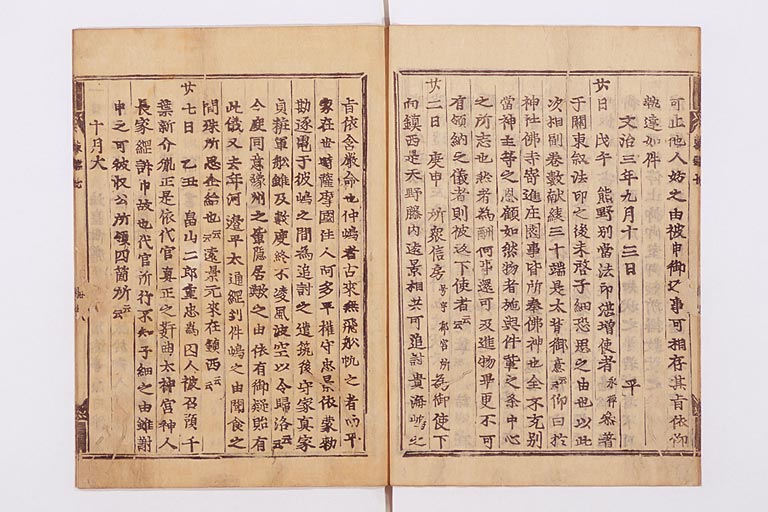 可止他人妨之由被申御之事可相存其旨依仰
執達如件
文治三年九月十三日 平
廿日 戊午 熊野別當法印湛増使者永禪參着
于關東叙法印之後未啓子細恐思之由也以此
次相副巻數献綾三十端是太背御意云々仰曰於
神社佛寺寄進庄園事皆所奉佛神也全不充別
當神主等之恩顧如然物者施與件輩之条中心
之所志也然者為酬何事還可及進物畢更不可
有領納之儀者則被返下使者云々
廿二日 庚申 所衆信房号宇都宮所 為御使下
向鎮西是天野藤内遠景相共可追討貴海嶋之
旨依含嚴命也仲嶋者古來無飛船帆之者而平
家在世時薩摩國住人阿多平權守忠景依蒙勅
勘逐電于彼嶋之間為追討之遣筑後守家貞家
貞粧軍船雖及數度終不凌風波空以令歸洛云々
今度同意豫州之輩隠居歟之由依有御疑貽有
此儀又去年河邊平太通經到件嶋之由聞食之
間殊所思企給也云々遠景元來在鎮西云々
廿七日 乙丑 畠山二郎重忠為囚人被召預千
葉新介胤正是依代官真正之奸曲太神宮神人
長家經訴申故也代官所行不知子細之由雖謝
申之可被収公所領四箇所云々
十月大